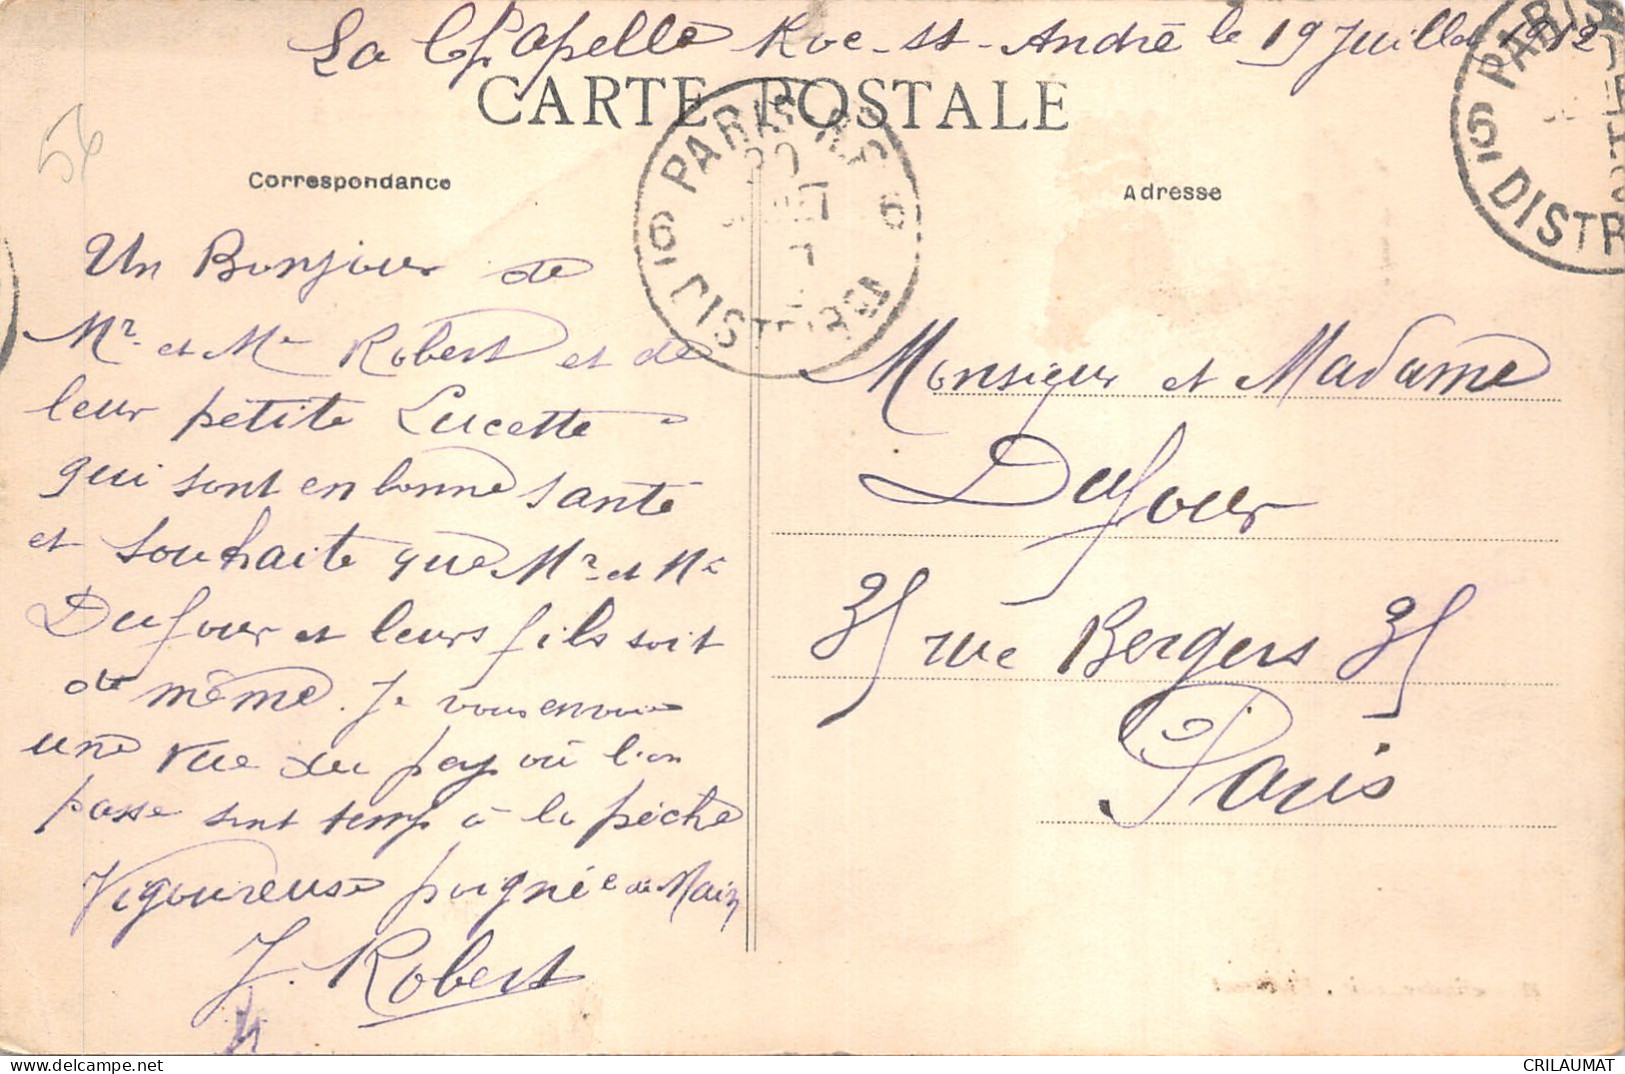 La Chapelle Roc-St-André le 19 Juillet 1912
CARTE POSTALE
56
PARIS R.P. 6
20
7
6 DISTRIB
PARIS
6 DISTR
Correspondance
Adresse
Un Bonjour de
Mr et Me Robert et de
leur petite Lucette
qui sont en bonne santé
et souhaite que Mr et Me
Dufour et leurs fils soit
de même. Je vous envoie
une vue du pays où l'on
passe sont temps à la pêche
Vigoureuse poignée de Main
J. Robert
Monsieur et Madame
Dufour
35 rue Bergers 35
Paris
CRILAUMAT